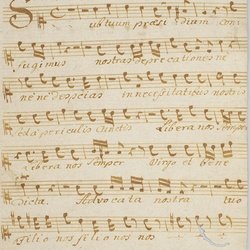 Sub tuum præsidium con
fugimus nostras deprecationes ne
ne ne despicias in necessitatibus nostris
sed a periculis cunctis Libera nos semper
Libera nos semper Virgo et bene
dicta. Advocata nostra tuo
filio nos filio nos nos